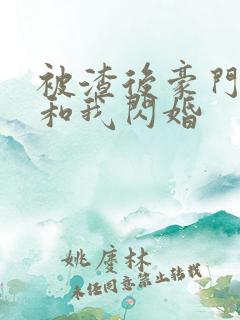 被渣後豪門
和我閃婚
姚慶林
未經同意禁止轉載